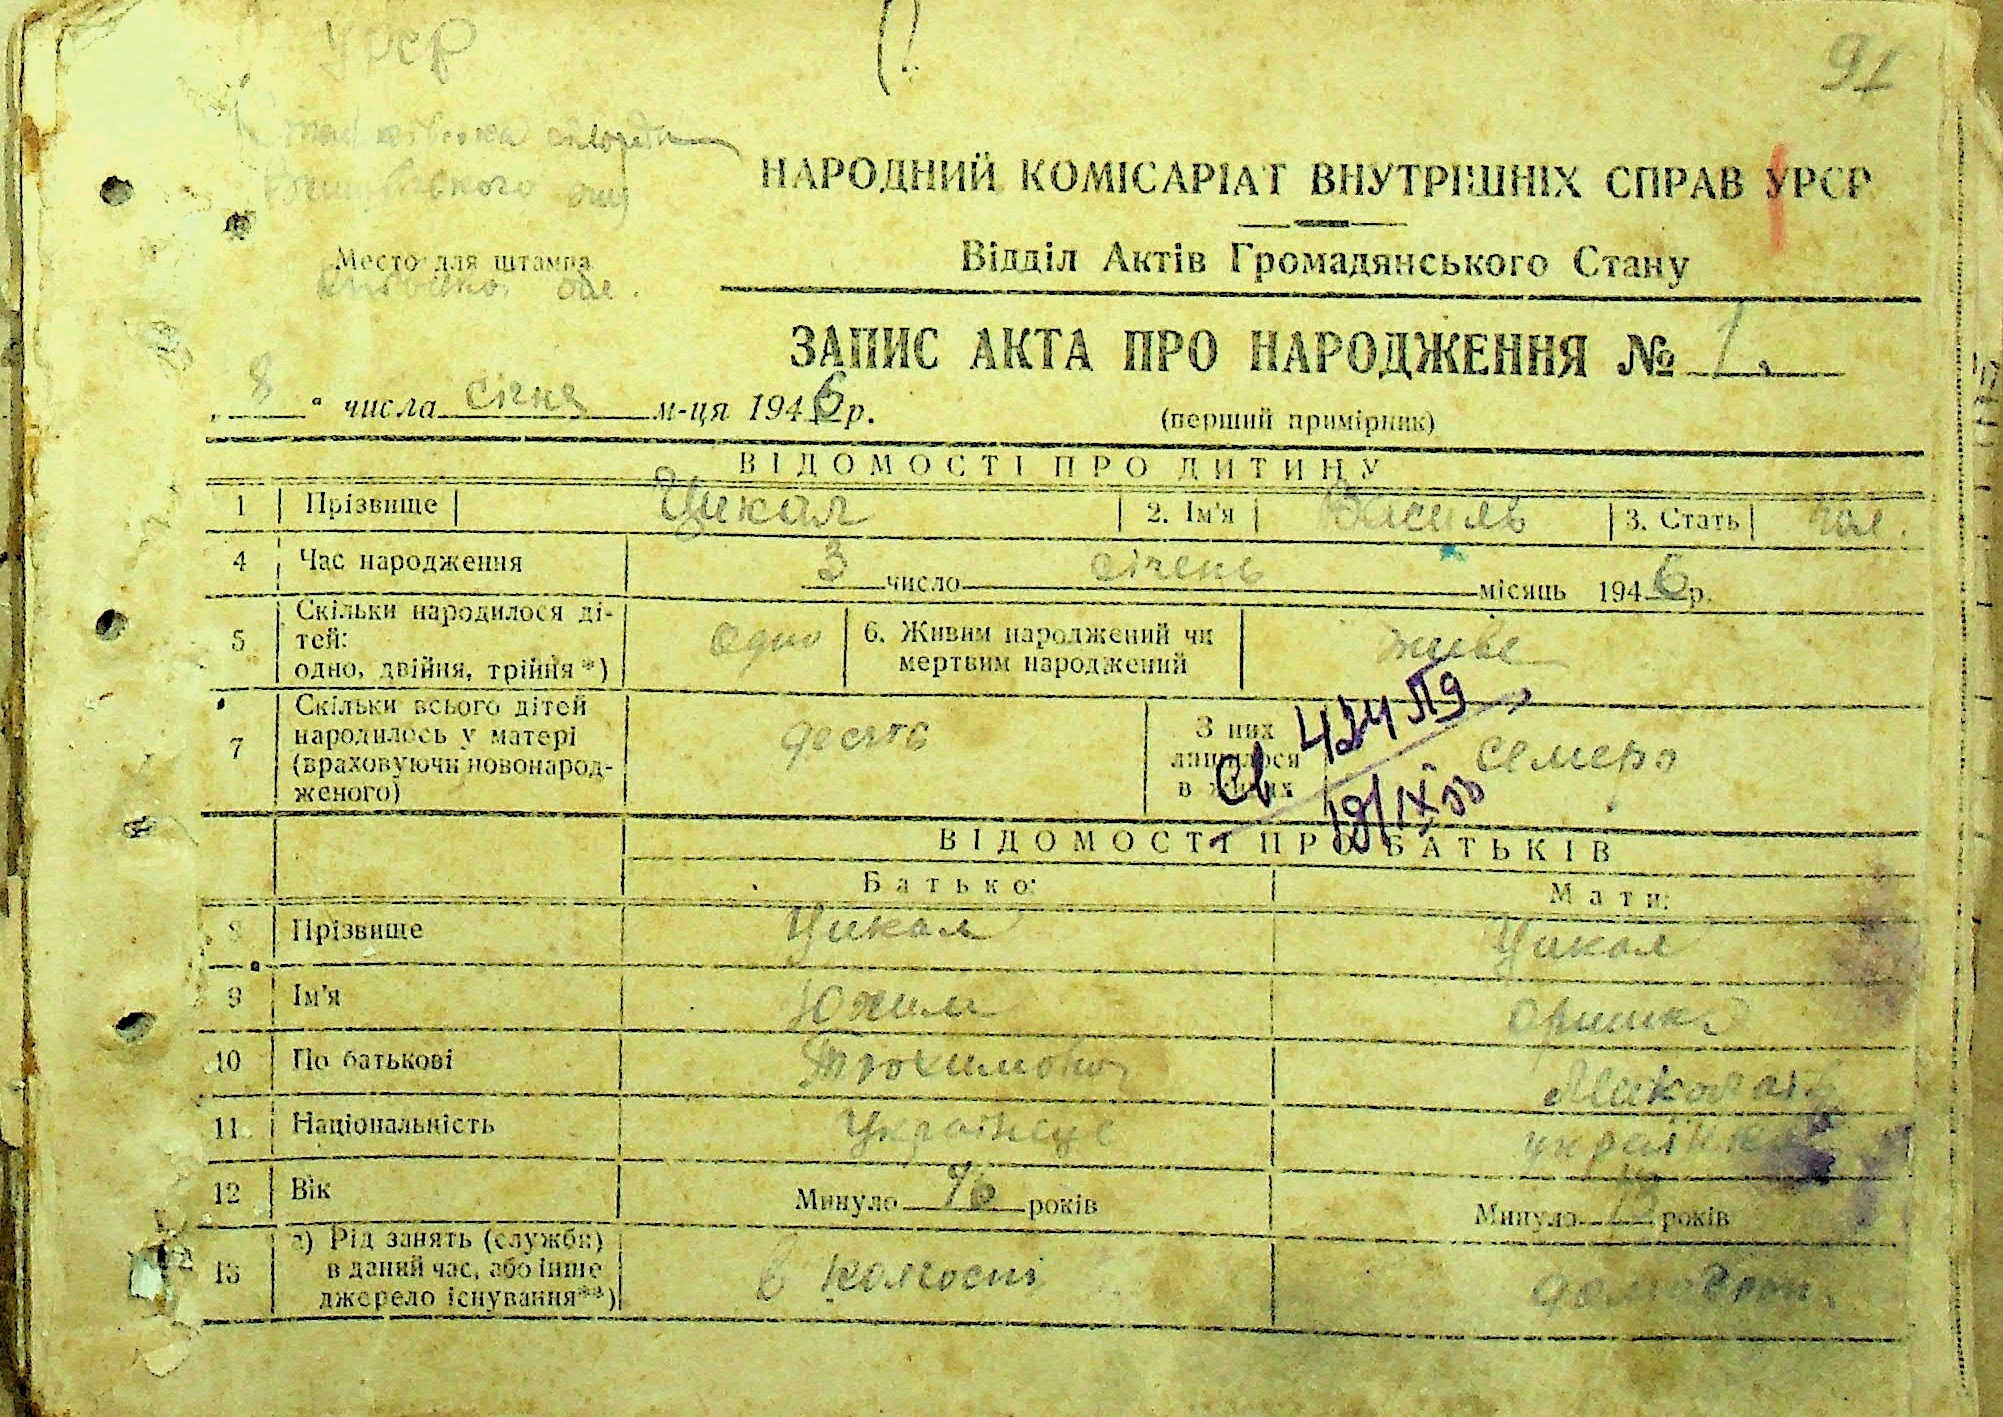 УРСР
91
НАРОДНИЙ КОМІСАРІАТ ВНУТРІШНІХ СПРАВ УРСР
Відділ Актів Громадянського Стану
Место для штампа
обл.
ЗАПИС АКТА ПРО НАРОДЖЕННЯ № 1.
„8" числа січня м-ця 1946 р.
(перший примірник)
ВІДОМОСТІ ПРО ДИТИНУ
1 Прізвище Цикал 2. Ім'я Василь 3. Стать чол.
4 Час народження 3 число січень місяць 1946 р.
5 Скільки народилося ді-
тей:
одно, двійня, трійня*) одно 6. Живим народжений чи
мертвим народжений живе
7 Скільки всього дітей
народилось у матері
(враховуючи новонарод-
женого) десять З них
лишилося
в живих семеро
ВІДОМОСТІ ПРО БАТЬКІВ
Батько: Мати:
8 Прізвище Цикал Цикал
9 Ім'я Юхим Оришка
10 По батькові Трохимович
11 Національність Українець українка
12 Вік Минуло років Минуло років
13 а) Рід занять (служби)
в даний час, або інше
джерело існування**) в колгоспі